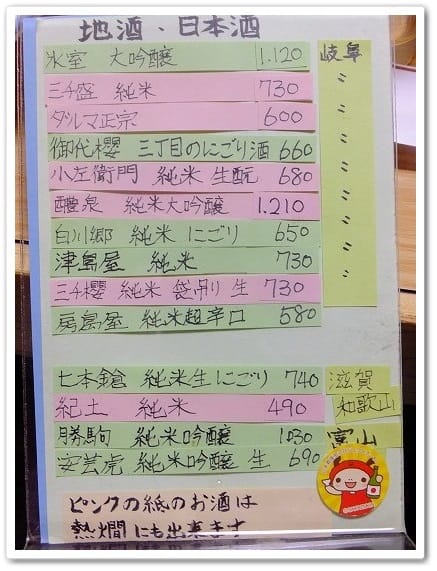 地酒・日本酒
氷室 大吟醸 1.120 岐阜
三千盛 純米 730 〃
ダルマ正宗 600 〃
御代櫻 三丁目のにごり酒 660 〃
小左衛門 純米 生酛 680 〃
醴泉 純米大吟醸 1.210 〃
白川郷 純米 にごり 650 〃
津島屋 純米 730 〃
三千櫻 純米 袋吊り 生 730 〃
房島屋 純米超辛口 580 〃
七本鎗 純米生にごり 740 滋賀
紀土 純米 490 和歌山
勝駒 純米吟醸 1030 富山
安芸虎 純米吟醸 生 690
ピンクの紙のお酒は
熱燗にも出来ます